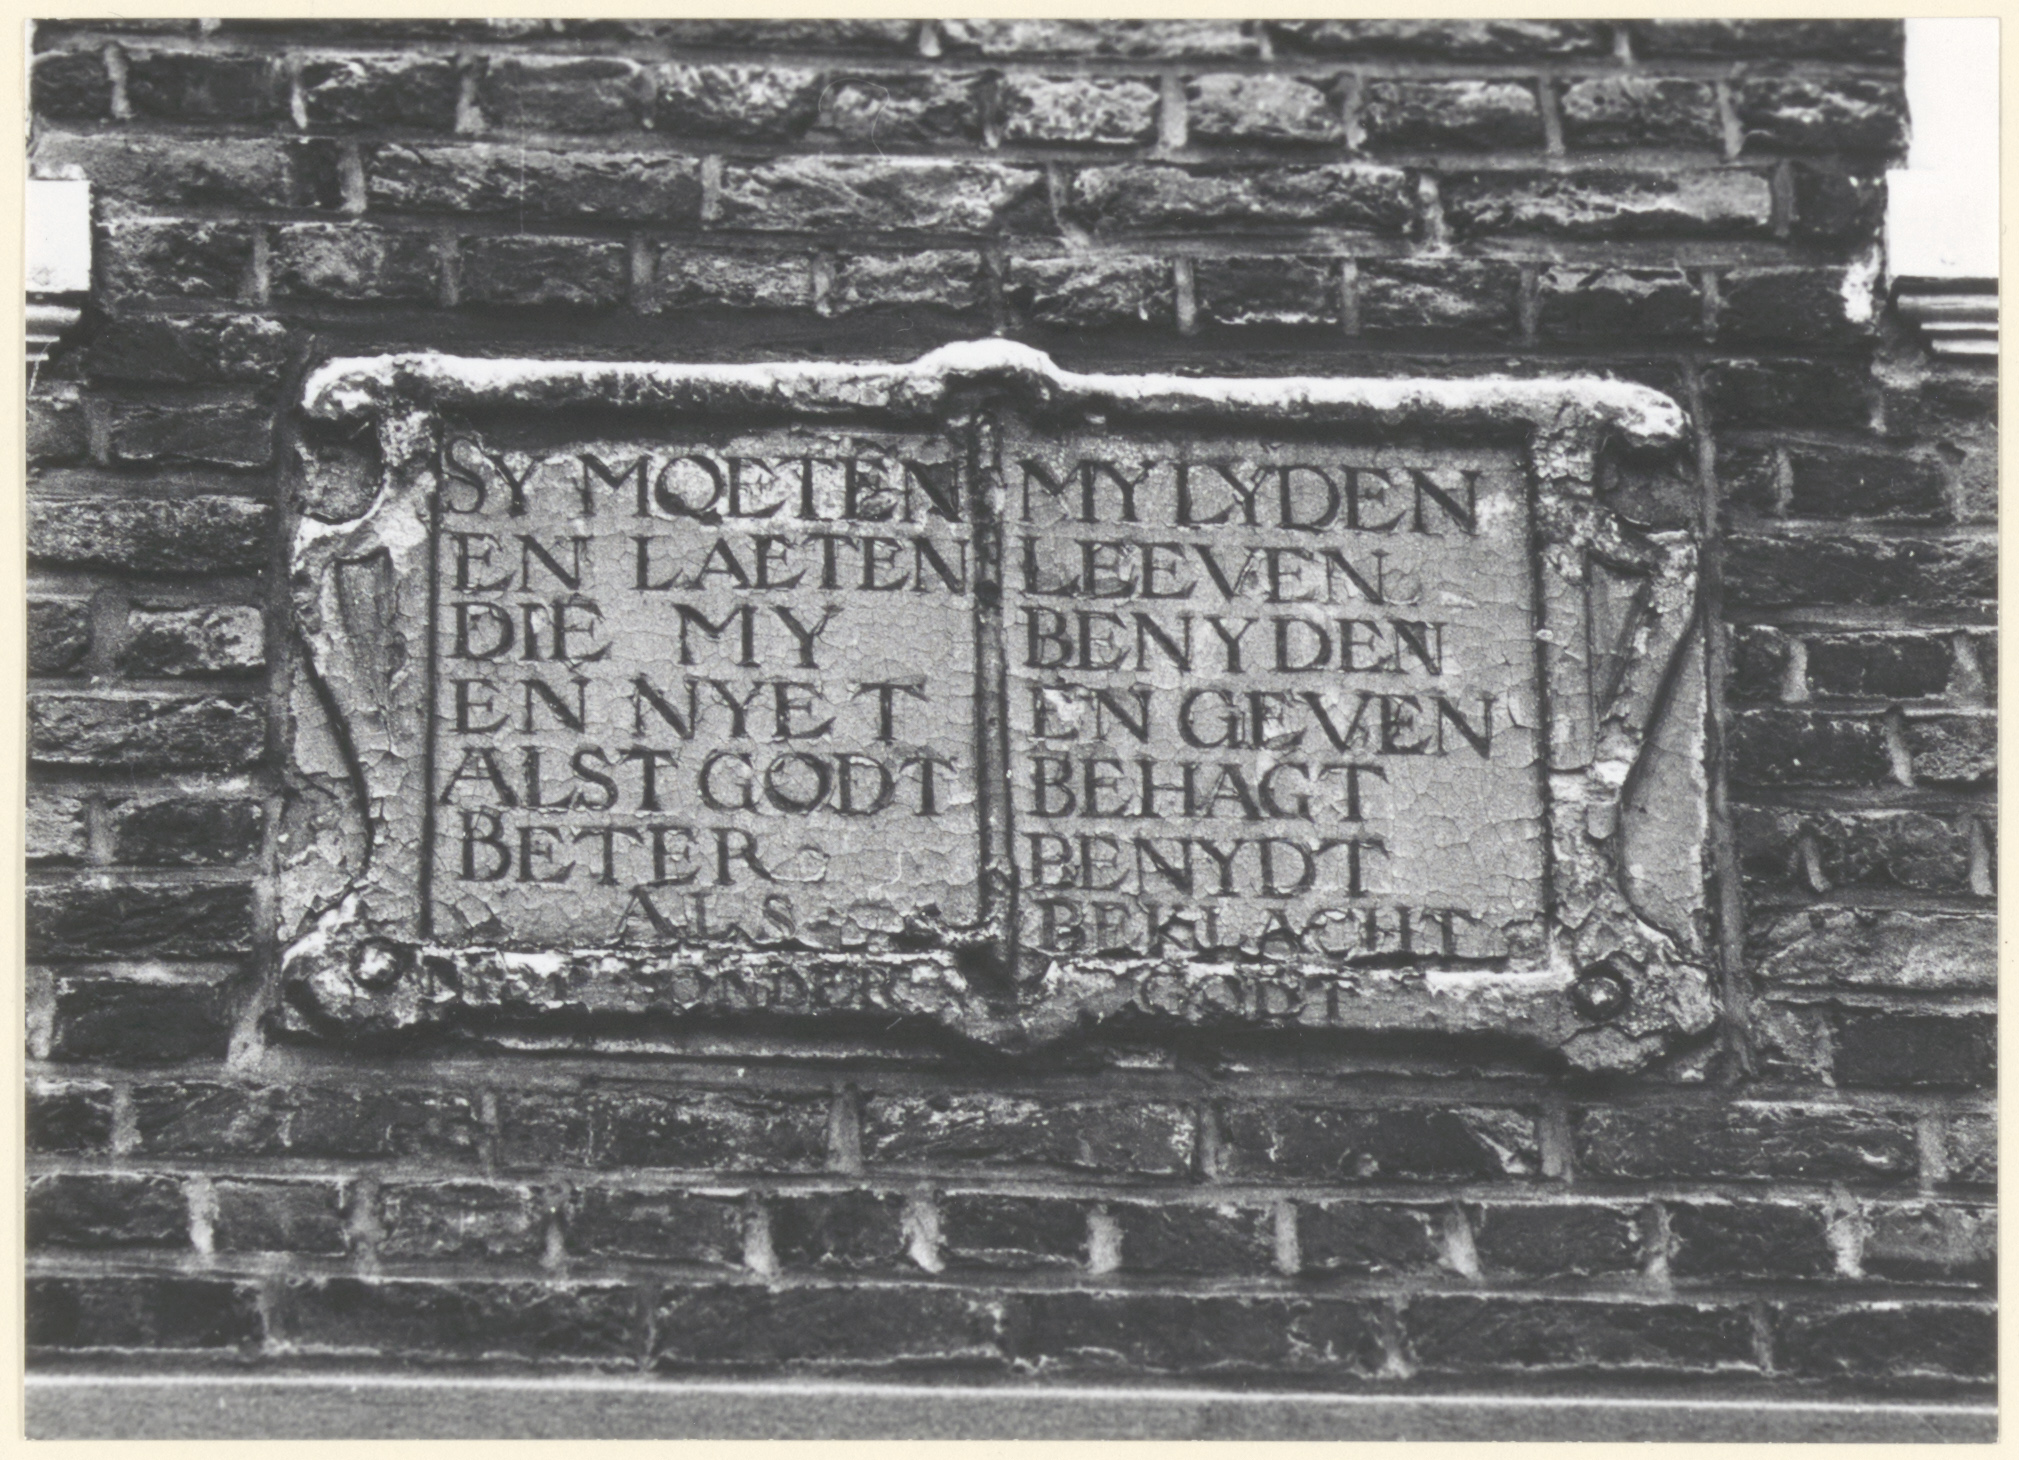 SY MOETEN MY LYDEN
EN LAETEN LEEVEN
DIE MY BENYDEN
EN NYET EN GEVEN
ALST GODT BEHAGT
BETER BENYDT
ALS BEKLACHT
ONDER GODT